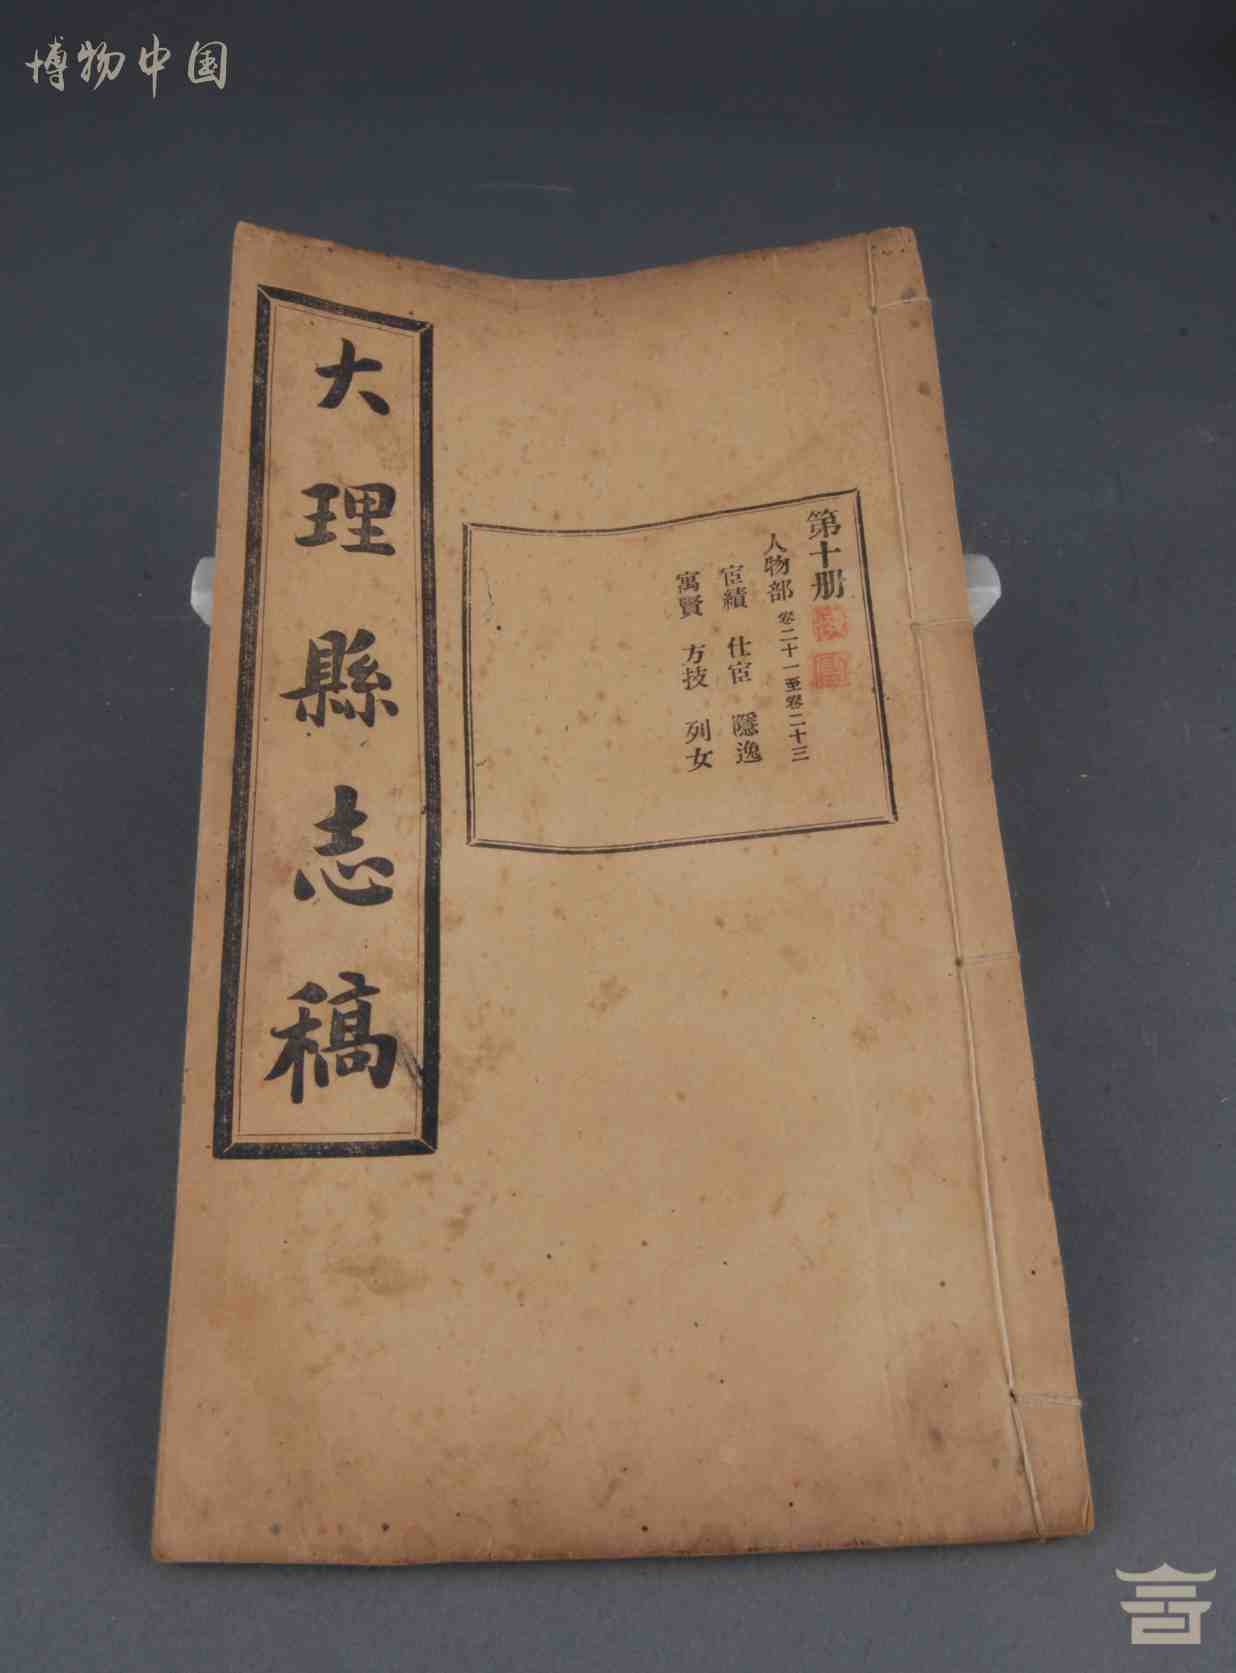 博物中国
大理縣志稿
第十册
人物部 卷二十一至卷二十三
宦績 仕宦 隱逸
寓賢 方技 列女